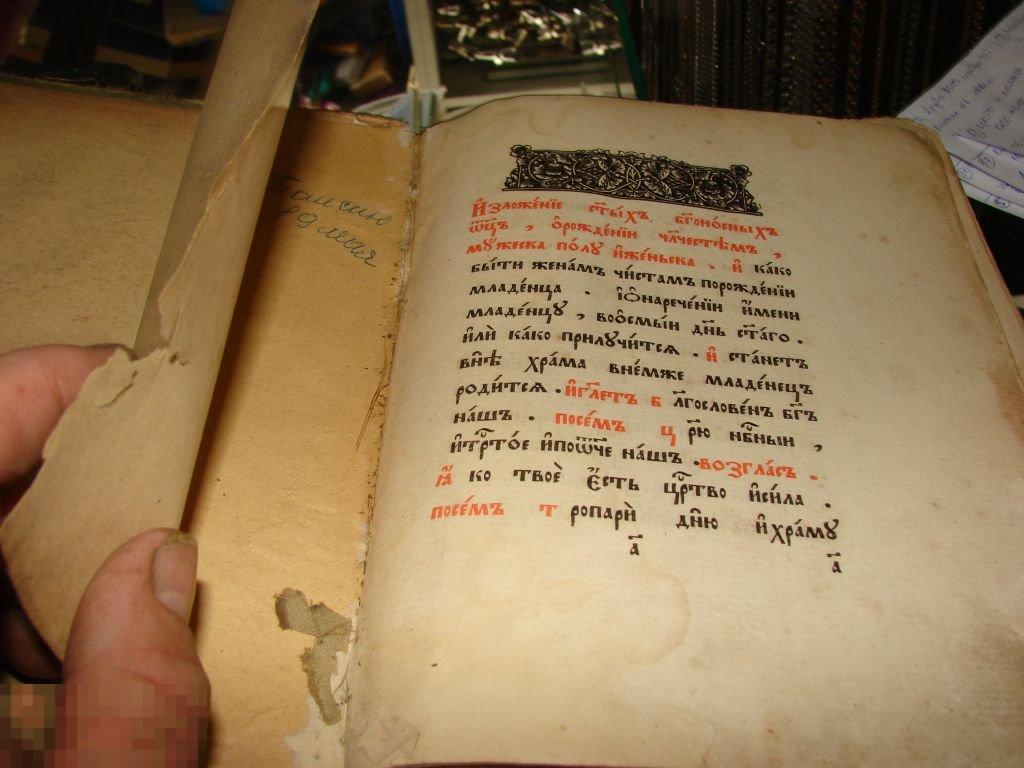 Изложе́нїе ст҃ы́хъ, бг҃оно́сныхъ
ѿц҃ъ, ѡ҆рожде́нїи чл҃честѣмъ,
мꙋ́жеска по́лꙋ и҆же́ньска. и҆ ка́ко
бы́ти жена́мъ чи́стамъ порожде́нїи
младе́нца. і҆ѡ҆нарече́нїи и҆́мени
младе́нцꙋ, воѻ҆смы́и дн҃ь ст҃а́го.
и҆лѝ ка́ко прилꙋчи́тсѧ. и҆ ста́нетъ
внѣ̀ хра́ма вне́мже младе́нецъ
роди́тсѧ. и҆гл҃етъ б лг҃ослове́нъ бг҃ъ
на́шъ. посе́мъ ц р҃ю нб҃ныи,
и҆трⷭ҇то́е и҆поѿч҃е на́шъ. во́згласъ.
ꙗ҆́ ко твоѐ є҆́сть црⷭ҇тво и҆си́ла.
посе́мъ т ропарѝ дн҃ю и҆хра́мꙋ
а҃
а҃